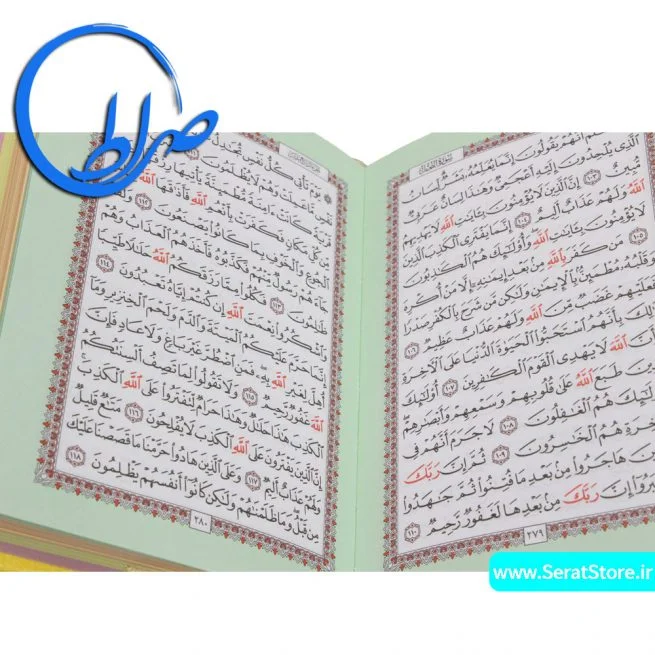 صراط
أَنَّهُمْ يَقُولُونَ إِنَّمَا يُعَلِّمُهُ بَشَرٌ لِسَانُ
ٱلَّذِي يُلْحِدُونَ إِلَيْهِ أَعْجَمِيٌّ وَهَٰذَا لِسَانٌ عَرَبِيٌّ
مُبِينٌ ١٠٣ إِنَّ ٱلَّذِينَ لَا يُؤْمِنُونَ بِـَٔايَٰتِ ٱللَّهِ لَا يَهْدِيهِمُ
ٱللَّهُ وَلَهُمْ عَذَابٌ أَلِيمٌ ١٠٤ إِنَّمَا يَفْتَرِي ٱلْكَذِبَ ٱلَّذِينَ
لَا يُؤْمِنُونَ بِـَٔايَٰتِ ٱللَّهِ وَأُولَٰئِكَ هُمُ ٱلْكَٰذِبُونَ ١٠٥
مَن كَفَرَ بِٱللَّهِ مِنۢ بَعْدِ إِيمَٰنِهِ إِلَّا مَنْ أُكْرِهَ
وَقَلْبُهُ مُطْمَئِنٌّ بِٱلْإِيمَٰنِ وَلَٰكِن مَّن شَرَحَ بِٱلْكُفْرِ صَدْرًا
فَعَلَيْهِمْ غَضَبٌ مِّنَ ٱللَّهِ وَلَهُمْ عَذَابٌ عَظِيمٌ ١٠٦
بِأَنَّهُمُ ٱسْتَحَبُّوا ٱلْحَيَوٰةَ ٱلدُّنْيَا عَلَى ٱلْـَٔاخِرَةِ
ٱللَّهَ لَا يَهْدِي ٱلْقَوْمَ ٱلْكَٰفِرِينَ ١٠٧ أُولَٰئِكَ
طَبَعَ ٱللَّهُ عَلَىٰ قُلُوبِهِمْ وَسَمْعِهِمْ وَأَبْصَٰرِهِمْ
هُمُ ٱلْغَٰفِلُونَ ١٠٨ لَا جَرَمَ أَنَّهُمْ فِي
هُمُ ٱلْخَٰسِرُونَ ١٠٩ ثُمَّ إِنَّ رَبَّكَ
هَاجَرُوا مِنۢ بَعْدِ مَا فُتِنُوا ثُمَّ جَٰهَدُوا
إِنَّ رَبَّكَ مِنۢ بَعْدِهَا لَغَفُورٌ رَّحِيمٌ ١١٠
٢٧٩
يَوْمَ تَأْتِي كُلُّ نَفْسٍ تُجَٰدِلُ
نَفْسٍ مَّا عَمِلَتْ وَهُمْ لَا يُظْلَمُونَ ١١١
قَرْيَةً كَانَتْ ءَامِنَةً مُّطْمَئِنَّةً يَأْتِيهَا رِزْقُهَا
كُلِّ مَكَانٍ فَكَفَرَتْ بِأَنْعُمِ ٱللَّهِ فَأَذَٰقَهَا ٱللَّهُ
ٱلْجُوعِ وَٱلْخَوْفِ بِمَا كَانُوا يَصْنَعُونَ ١١٢
جَاءَهُمْ رَسُولٌ مِّنْهُمْ فَكَذَّبُوهُ فَأَخَذَهُمُ ٱلْعَذَابُ وَهُمْ
ظَٰلِمُونَ ١١٣ فَكُلُوا مِمَّا رَزَقَكُمُ ٱللَّهُ حَلَٰلًا طَيِّبًا
وَٱشْكُرُوا نِعْمَتَ ٱللَّهِ إِن كُنتُمْ إِيَّاهُ تَعْبُدُونَ ١١٤
إِنَّمَا حَرَّمَ عَلَيْكُمُ ٱلْمَيْتَةَ وَٱلدَّمَ وَلَحْمَ ٱلْخِنزِيرِ وَمَا
أُهِلَّ لِغَيْرِ ٱللَّهِ بِهِ فَمَنِ ٱضْطُرَّ غَيْرَ بَاغٍ وَلَا عَادٍ فَإِنَّ
ٱللَّهَ غَفُورٌ رَّحِيمٌ ١١٥ وَلَا تَقُولُوا لِمَا تَصِفُ أَلْسِنَتُكُمُ
ٱلْكَذِبَ هَٰذَا حَلَٰلٌ وَهَٰذَا حَرَامٌ لِّتَفْتَرُوا عَلَى ٱللَّهِ ٱلْكَذِبَ
إِنَّ ٱلَّذِينَ يَفْتَرُونَ عَلَى ٱللَّهِ ٱلْكَذِبَ لَا يُفْلِحُونَ ١١٦ مَتَٰعٌ قَلِيلٌ
وَلَهُمْ عَذَابٌ أَلِيمٌ ١١٧ وَعَلَى ٱلَّذِينَ هَادُوا حَرَّمْنَا مَا قَصَصْنَا عَلَيْكَ
مِن قَبْلُ وَمَا ظَلَمْنَٰهُمْ وَلَٰكِن كَانُوا أَنفُسَهُمْ يَظْلِمُونَ ١١٨
٢٨٠
www.SeratStore.ir